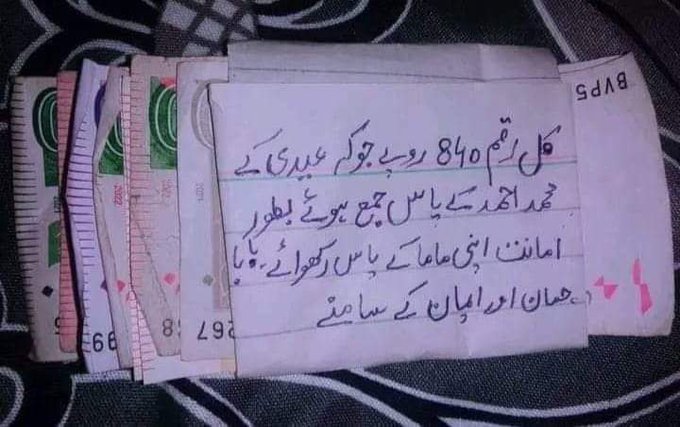 کل رقم 840 روپے جو کہ عیدی کے
محمد احمد کے پاس جمع ہوئے بطور
امانت اپنی ماما کے پاس رکھوائے۔ بابا
حسان اور ایمان کے سامنے
BVP5
2022
99
8
267